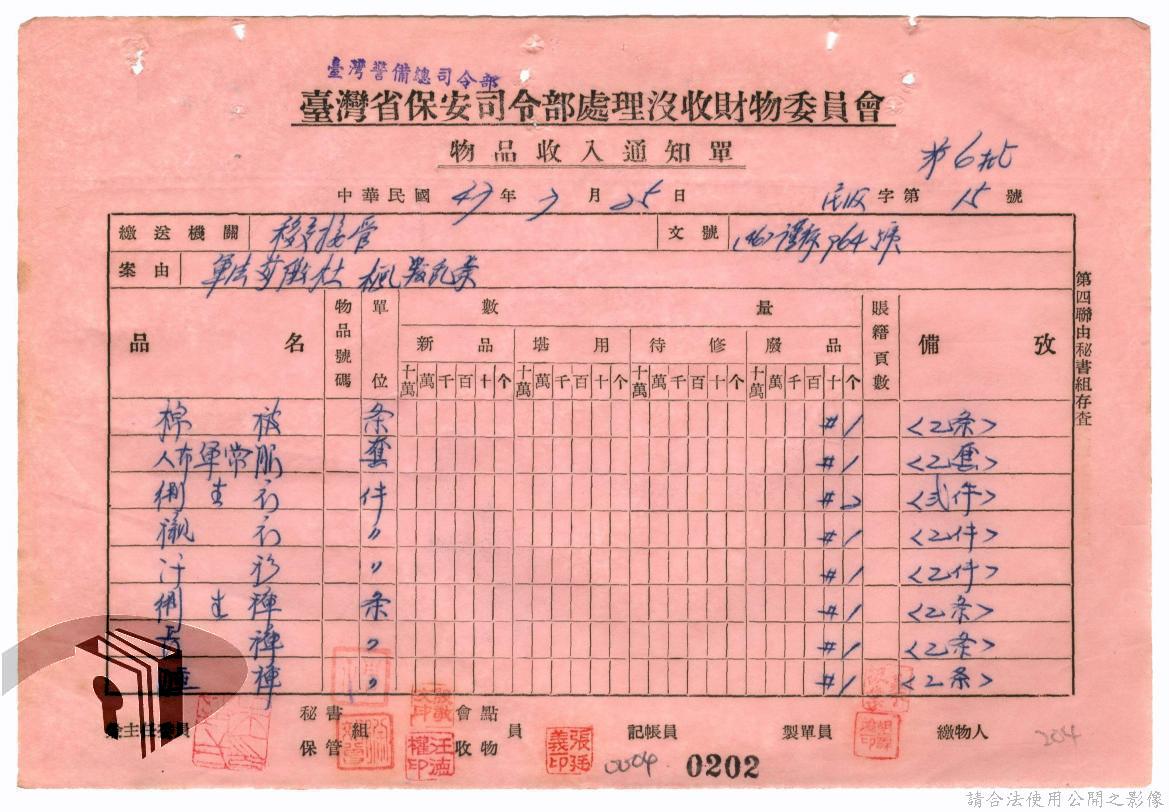 臺灣警備總司令部
臺灣省保安司令部處理沒收財物委員會
物品收入通知單
第6批
中華民國 47年 7月 25日 字第 15 號
繳送機關 移交接管 文號 964號
案由
品名 物品號碼 單位 數量 賬籍頁數 備攷
新品 堪用 待修 廢品
十萬 萬 千 百 十 个 十萬 萬 千 百 十 个 十萬 萬 千 百 十 个 十萬 萬 千 百 十 个
棉被 条 #1 <乙条>
人布軍常服 套 #1 <乙套>
衛生衣 件 #2 <弍件>
襯衣 〃 #1 <乙件>
汗衫 〃 #1 <乙件>
衛生褲 条 #1 <乙条>
長褲 〃 #1 <乙条>
褲 〃 #1 <乙条>
第四聯由秘書組存查
主任委員 秘書組 會點員 記帳員 製單員 繳物人
保管 收物
張廷義印
0004
0202
204
請合法使用公開之影像